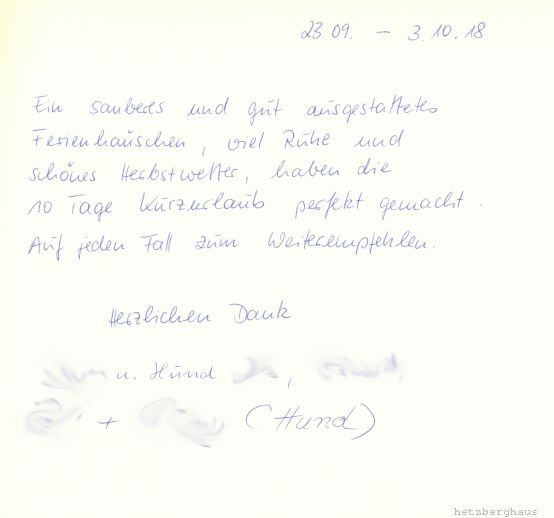 23.09. – 3.10.18
Ein sauberes und gut ausgestattetes
Ferienhäuschen, viel Ruhe und
schönes Herbstwetter, haben die
10 Tage Kurzurlaub perfekt gemacht.
Auf jeden Fall zum Weiterempfehlen.
Herzlichen Dank
u. Hund
+ (Hund)
hetzberghaus